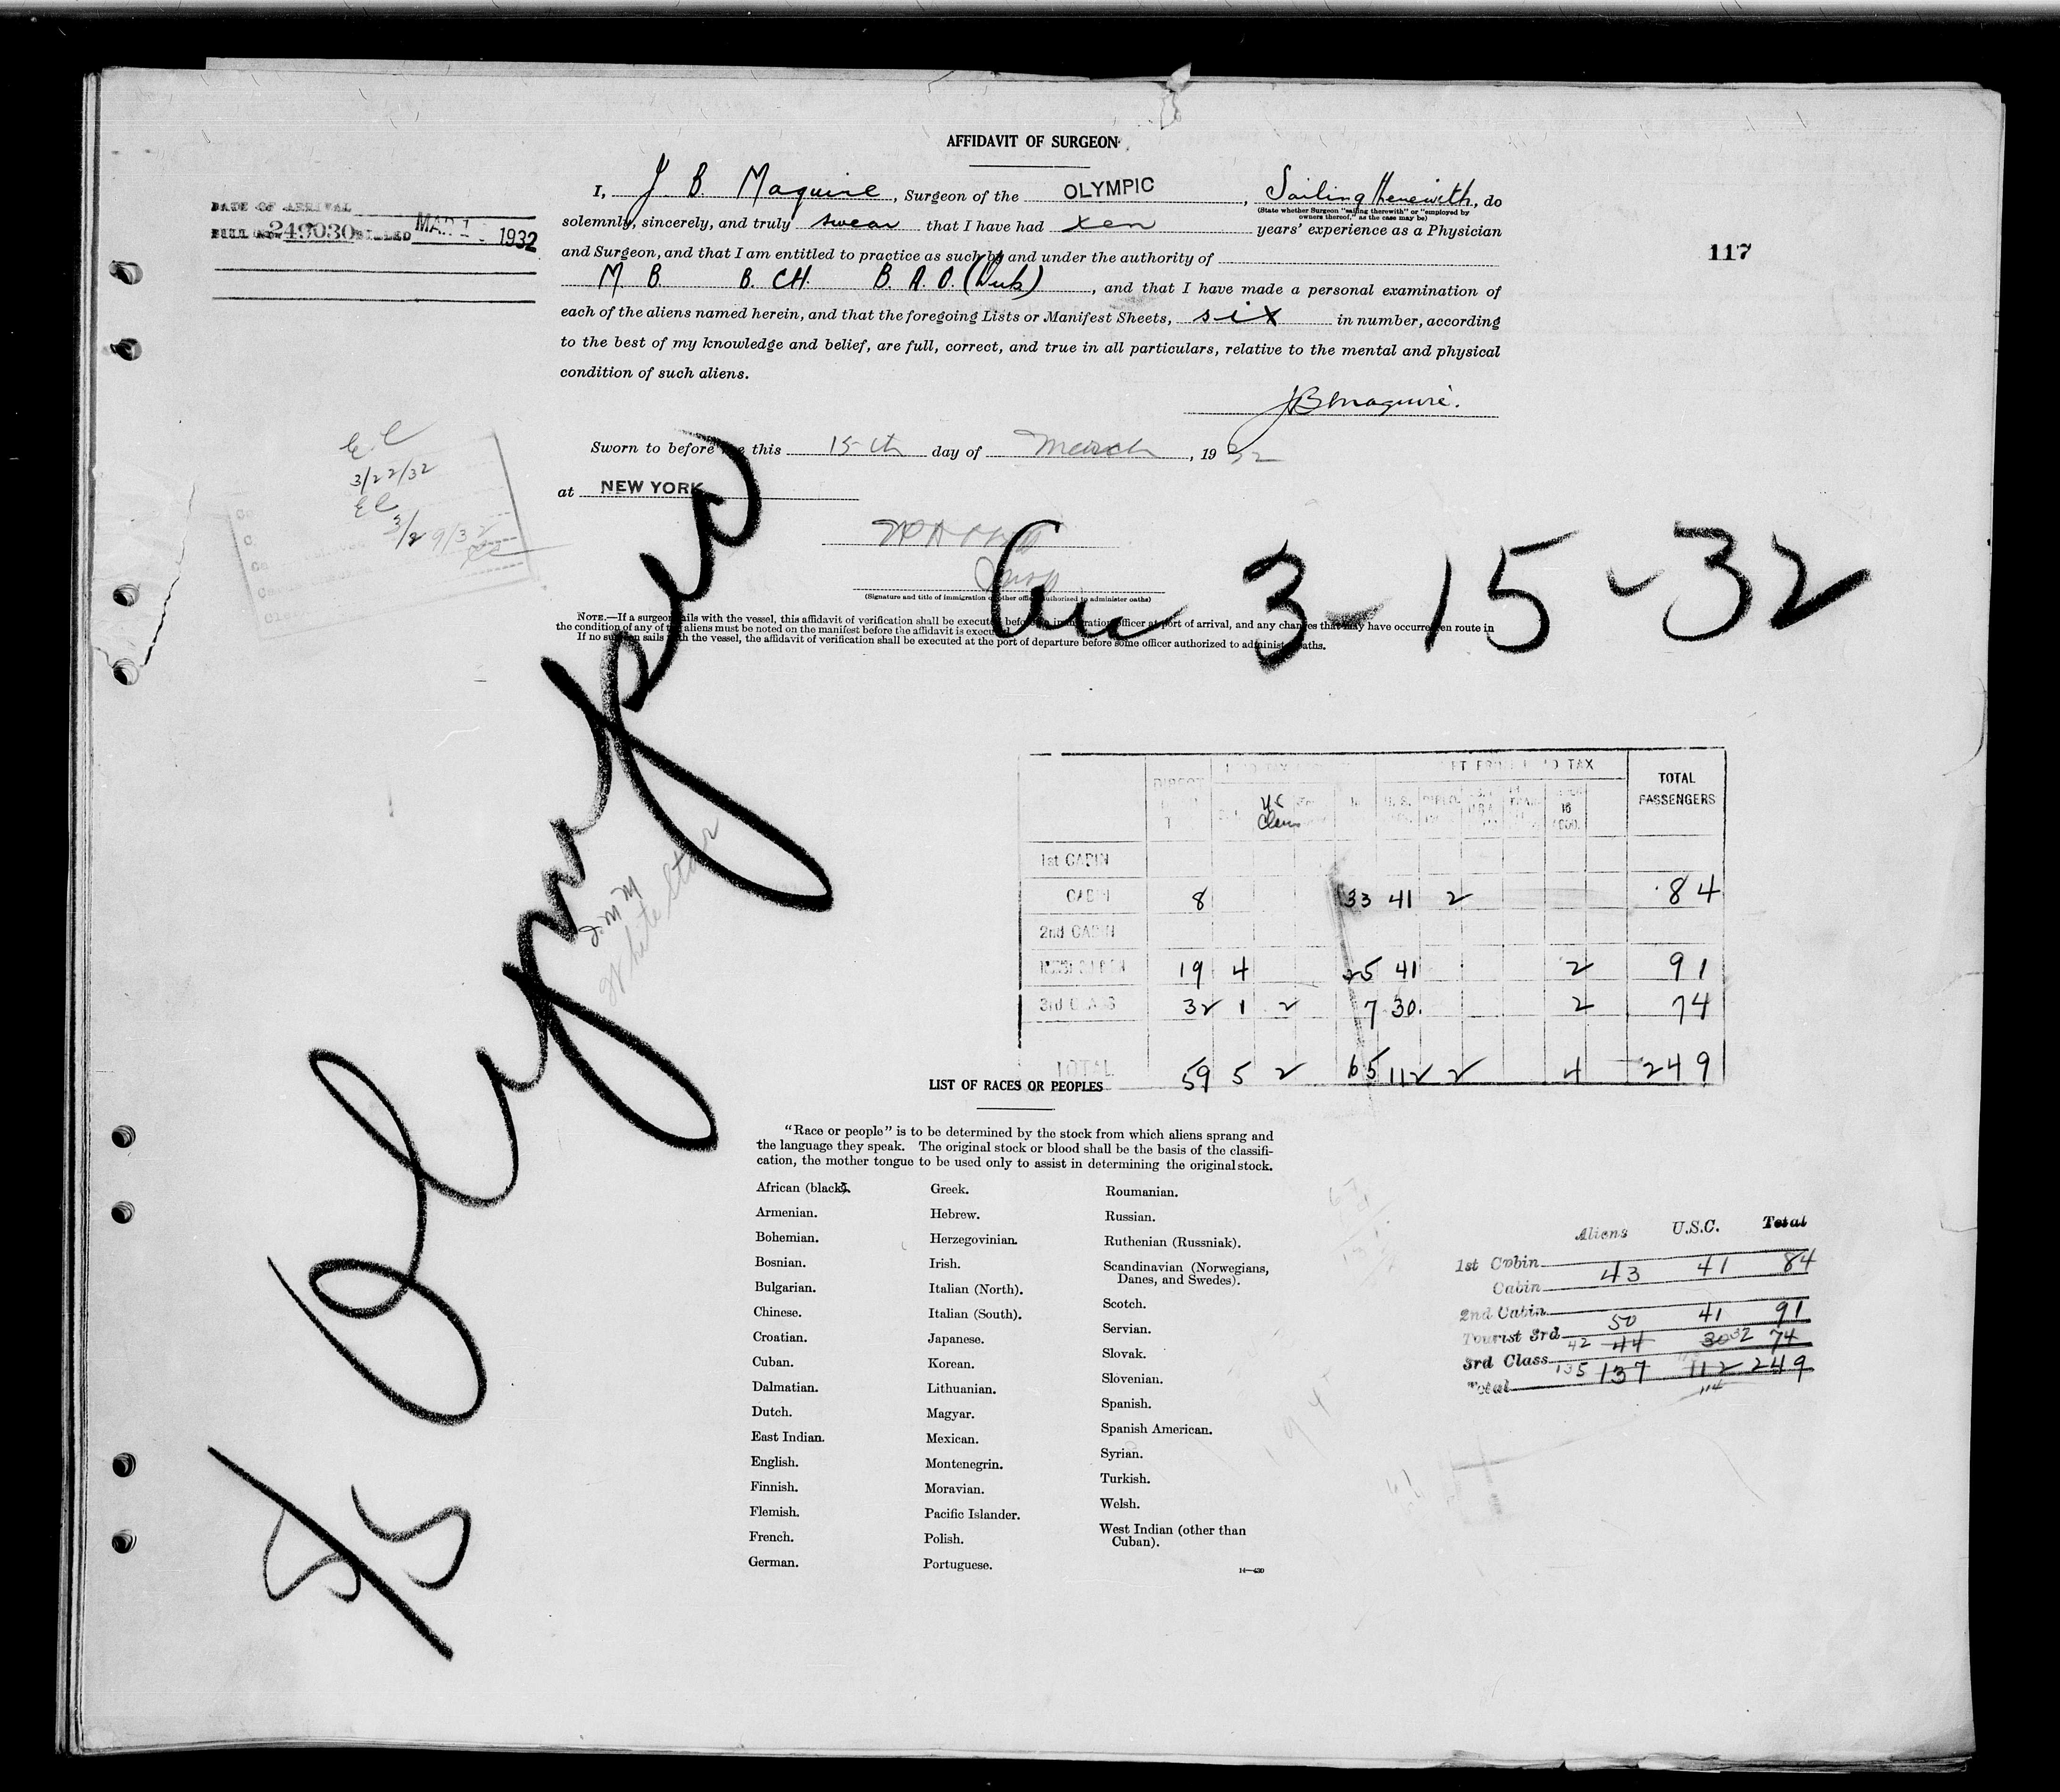 AFFIDAVIT OF SURGEON
I, J B. Maguire, Surgeon of the OLYMPIC, Sailing Herewith, do
(State whether Surgeon "sailing therewith" or "employed by
owners thereof," as the case may be)
solemnly, sincerely, and truly swear that I have had ten years' experience as a Physician
and Surgeon, and that I am entitled to practice as such by and under the authority of
M B. B. CH. B. A. O. (Dub), and that I have made a personal examination of
each of the aliens named herein, and that the foregoing Lists or Manifest Sheets, six in number, according
to the best of my knowledge and belief, are full, correct, and true in all particulars, relative to the mental and physical
condition of such aliens.
JBMaguire.
DATE OF ARRIVAL
249030 BILLED MAR 1 1932
117
El
3/22/32
El
3/29/32
Sworn to before me this 15th day of March, 1932
at NEW YORK
(Signature and title of immigration or other officer authorized to administer oaths)
NOTE.—If a surgeon sails with the vessel, this affidavit of verification shall be executed before an immigration officer at port of arrival, and any changes that may have occurred en route in
the condition of any of the aliens must be noted on the manifest before the affidavit is executed.
If no surgeon sails with the vessel, the affidavit of verification shall be executed at the port of departure before some officer authorized to administer oaths.
Arr 3-15-32
S/S Olympic
White Star
TOTAL
PASSENGERS
U.S.
DIPLO.
16
1st CABIN
CABIN 8 33 41 2 84
2nd CABIN
19 4 25 41 2 91
3rd CLASS 32 1 2 7 30. 2 74
TOTAL 59 5 2 65 112 2 4 249
LIST OF RACES OR PEOPLES
"Race or people" is to be determined by the stock from which aliens sprang and
the language they speak. The original stock or blood shall be the basis of the classifi-
cation, the mother tongue to be used only to assist in determining the original stock.
African (black).
Armenian.
Bohemian.
Bosnian.
Bulgarian.
Chinese.
Croatian.
Cuban.
Dalmatian.
Dutch.
East Indian.
English.
Finnish.
Flemish.
French.
German.
Greek.
Hebrew.
Herzegovinian.
Irish.
Italian (North).
Italian (South).
Japanese.
Korean.
Lithuanian.
Magyar.
Mexican.
Montenegrin.
Moravian.
Pacific Islander.
Polish.
Portuguese.
Roumanian.
Russian.
Ruthenian (Russniak).
Scandinavian (Norwegians,
Danes, and Swedes).
Scotch.
Servian.
Slovak.
Slovenian.
Spanish.
Spanish American.
Syrian.
Turkish.
Welsh.
West Indian (other than
Cuban).
14—430
Aliens U.S.C. Total
1st Cabin
Cabin 43 41 84
2nd Cabin
Tourist 3rd 50 41 91
3rd Class 42 44 30 32 74
Total 135 137 112 249
114